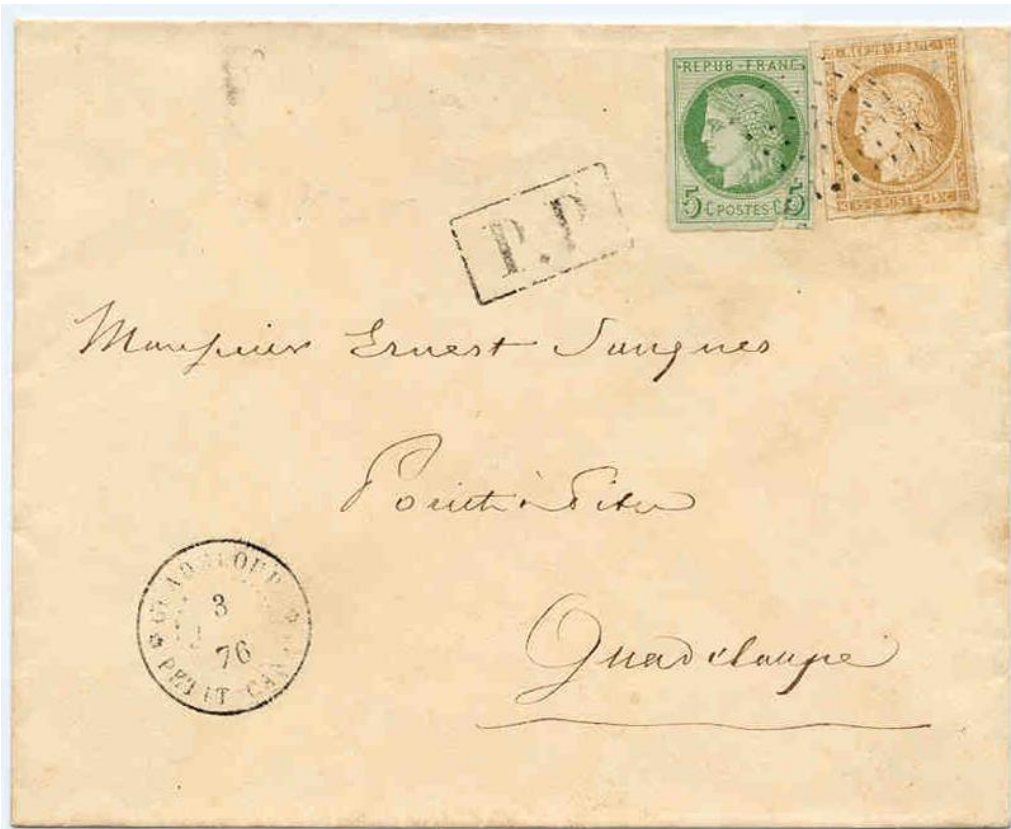 REPUB·FRANC
REPUB·FRANC
5 C. POSTES C. 5
P.P.
Monsieur Ernest Sangues
Pointe à Pitre
Guadeloupe
GUADELOUPE
3
76
PETIT-CANAL